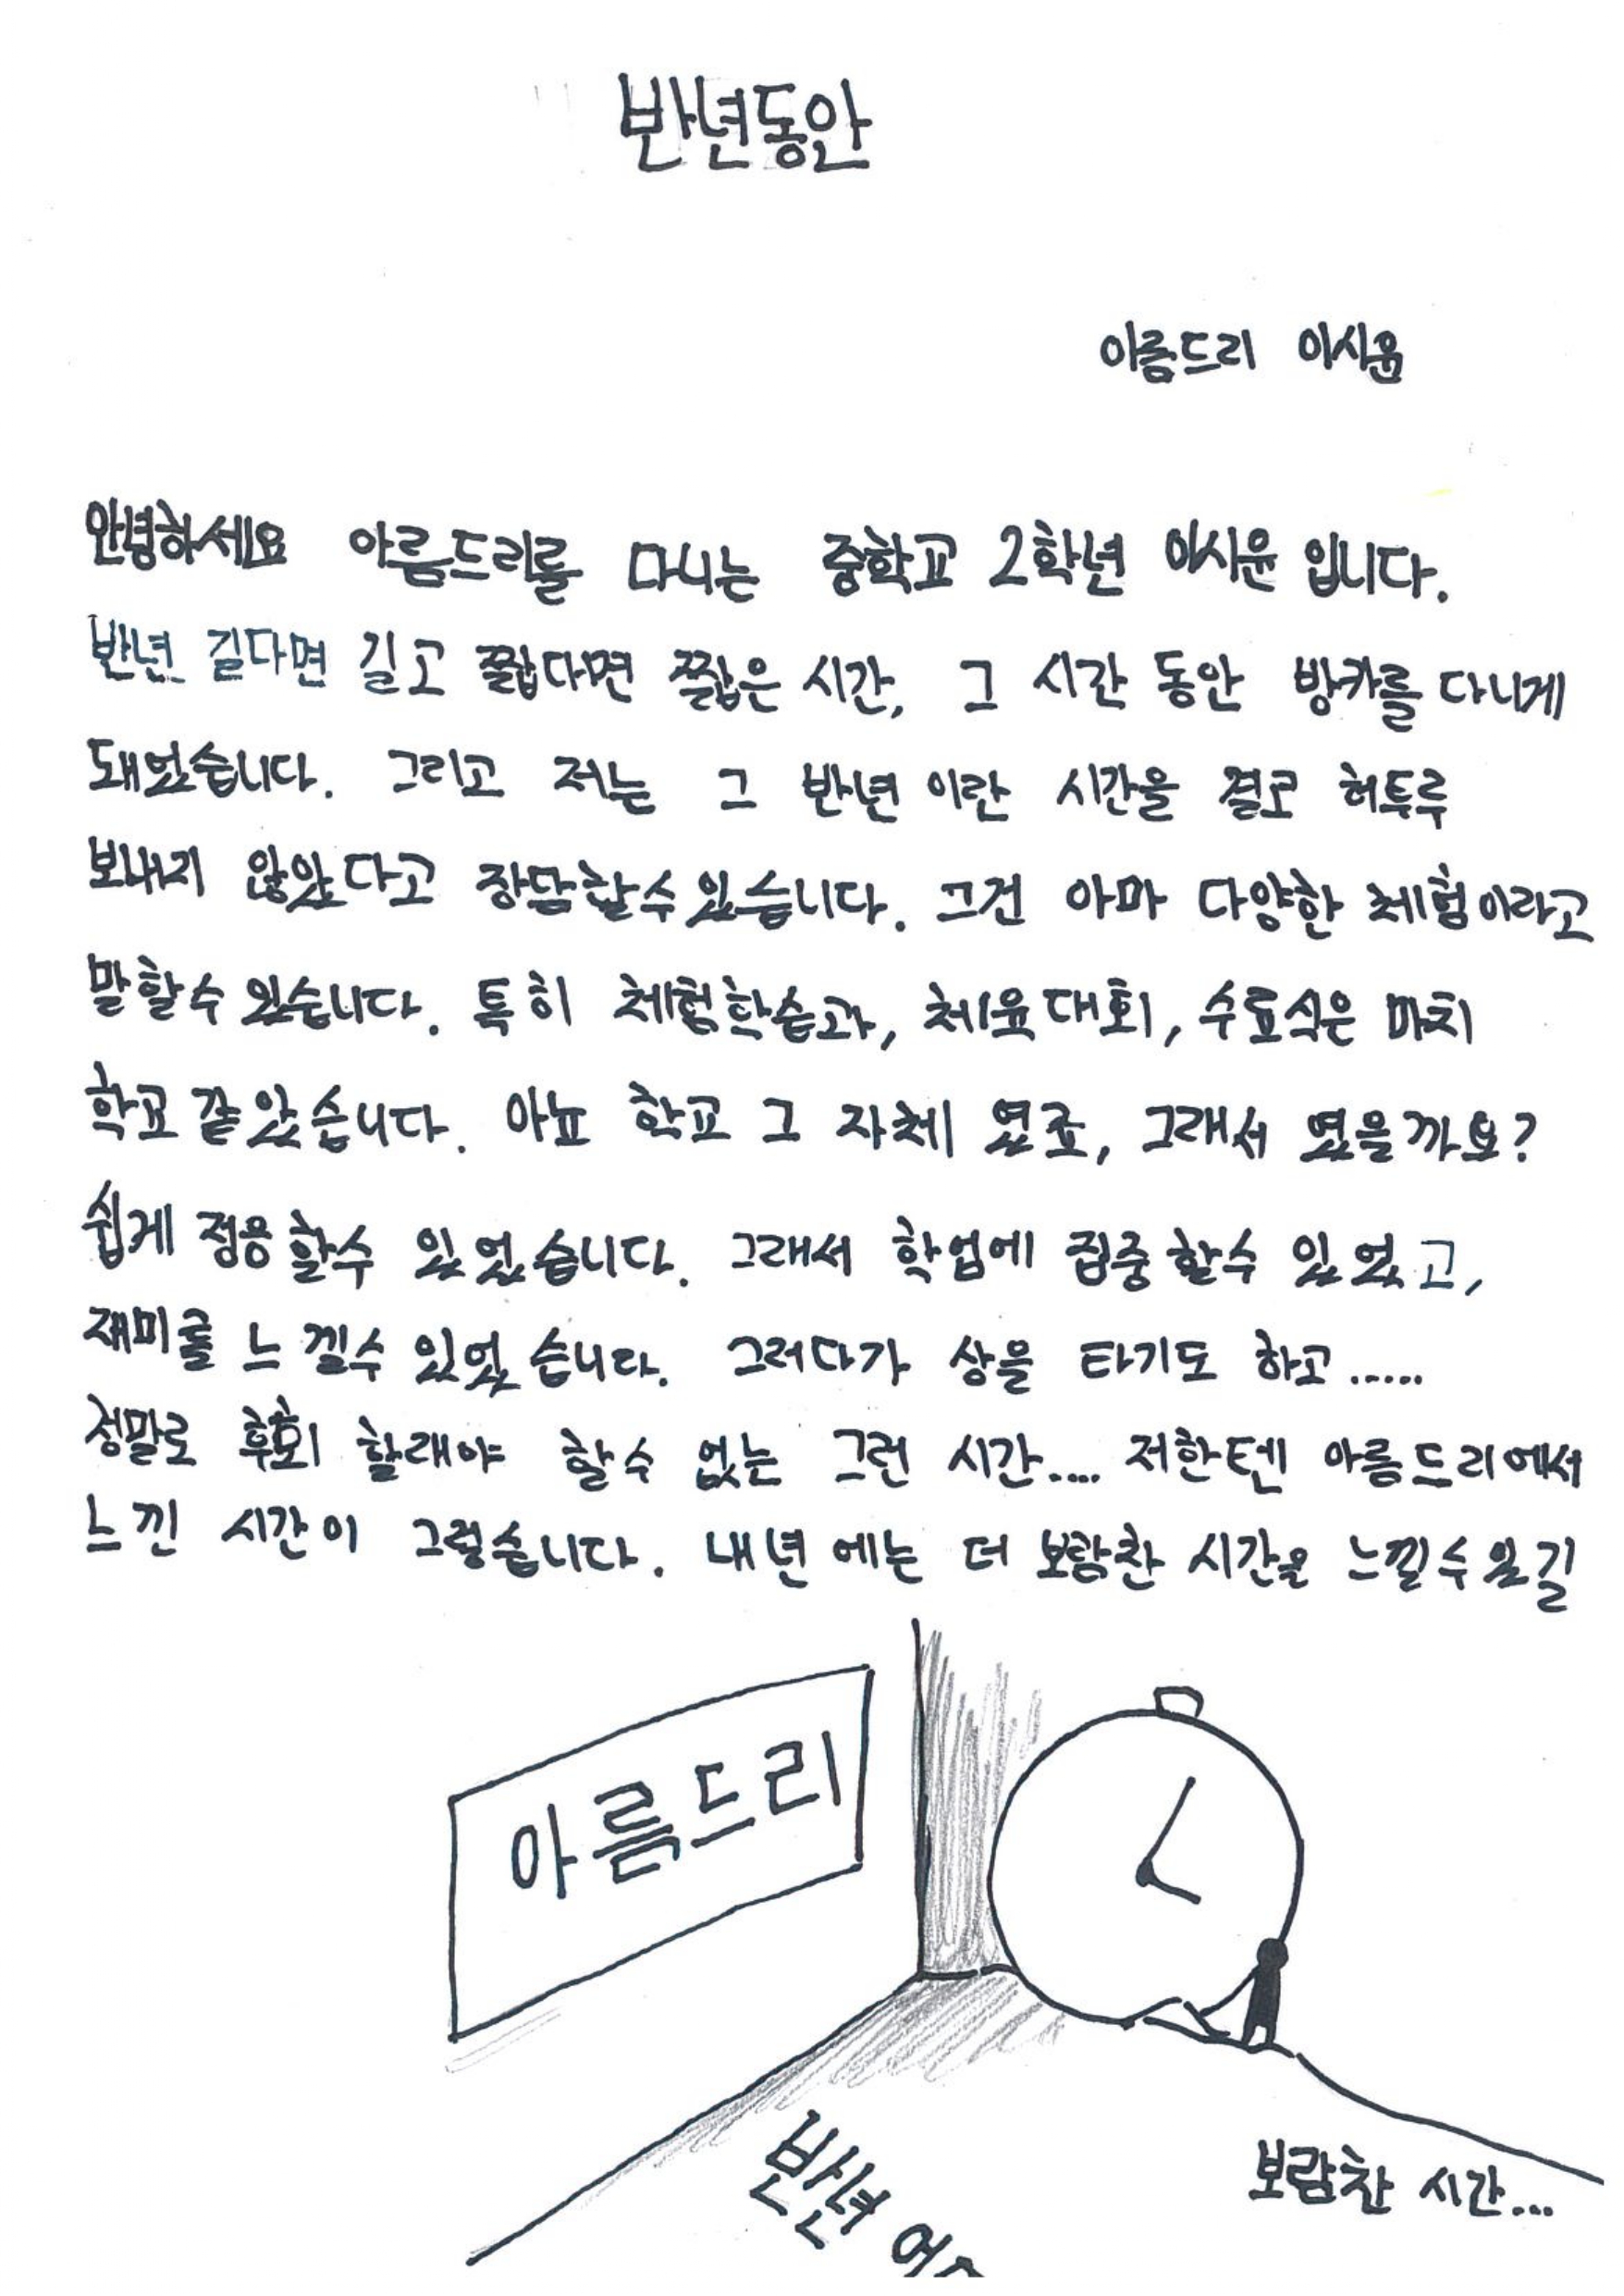 반년동안
아름드리 이시윤
안녕하세요 아름드리를 다니는 중학교 2학년 이시윤 입니다.
반년 길다면 길고 짧다면 짧은 시간, 그 시간 동안 방카를 다니게
돼었습니다. 그리고 저는 그 반년 이란 시간을 결코 허투루
보내지 않았다고 장담할수 있습니다. 그건 아마 다양한 체험이라고
말할수 있습니다. 특히 체험학습과, 체육대회, 수료식은 마치
학교 같았습니다. 아뇨 학교 그 자체 였죠, 그래서 였을까요?
쉽게 적응 할수 있었습니다. 그래서 학업에 집중 할수 있었고,
재미를 느낄수 있었습니다. 그러다가 상을 타기도 하고.....
정말로 후회 할래야 할수 없는 그런 시간.... 저한텐 아름드리에서
느낀 시간이 그렇습니다. 내년 에는 더 보람찬 시간을 느낄수 있길
아름드리
반년
보람찬 시간...